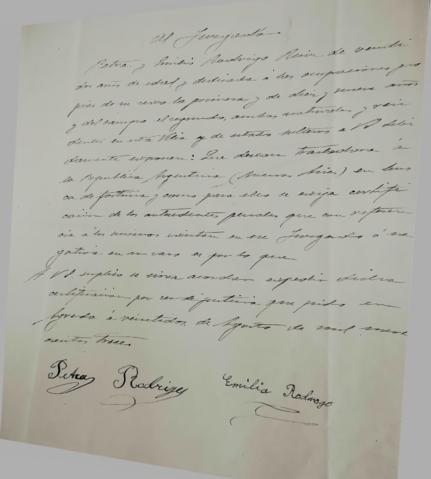 Al Juzgado
Petra y Emilio Rodrigo Ruiz de veinti
dos años de edad y dedicada á las ocupaciones pro
pias de su sexo la primera, y de diez y nueve años
y del campo el segundo, ambos naturales y resi
dentes en esta Villa y de estado solteros a V.S. debi
damente exponen: Que desean trasladarse a
la Republica Argentina (Buenos Aires) en bus
ca de fortuna y como para ello se exija certifi
cacion de los antecedentes penales que con referen
cia á los mismos existan en ese Juzgado ó ne
gativa en su caso es por lo que
A V.S. suplico se sirva acordar expedir dicha
certificacion por ser de justicia que pido en
Agreda á veintidos de Agosto de mil nove
cientos trece
Petra Rodrigo Emilio Rodrigo